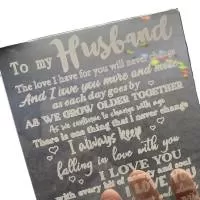 To my Husband
The love I have for you will never change
And I love you more and more
as each day goes by
AS WE GROW OLDER TOGETHER
As we continue to change with age
There is one thing that I never change
I always keep
falling in love with you
I LOVE YOU
with every bit of my and soul
I LOVE YOU